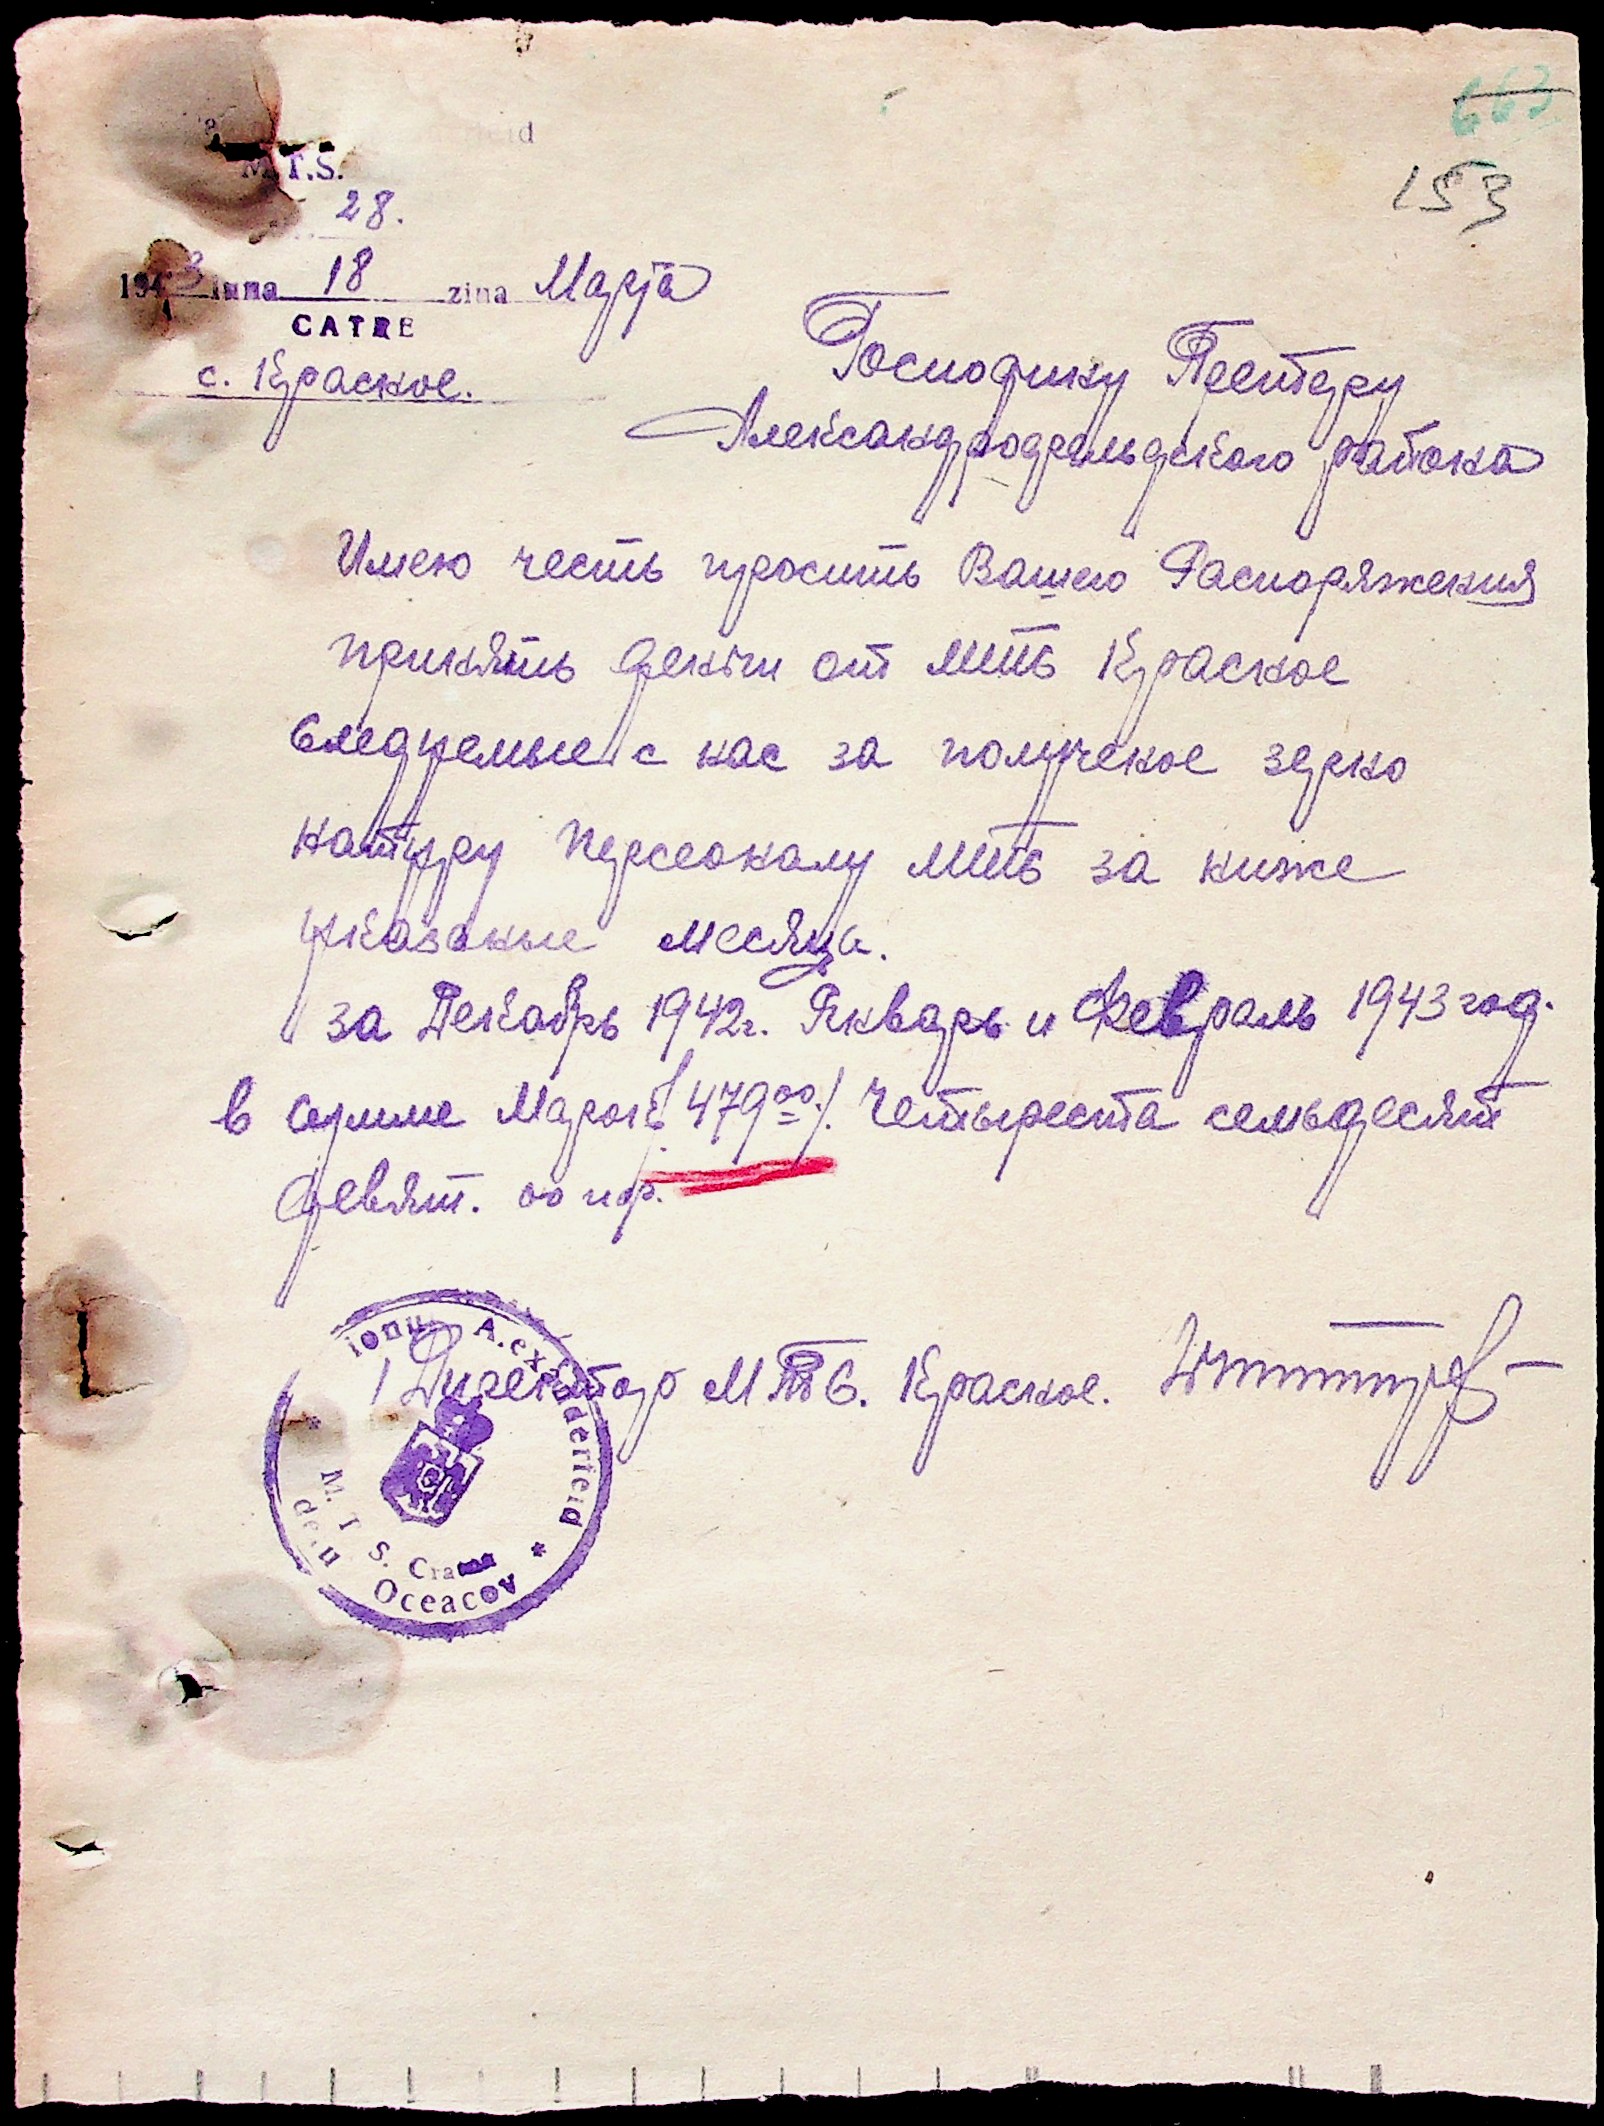 663
153
M.T.S.
28.
1943 luna 18 zina Марта
CATRE
с. Красное.
Господину Претору
Александрфельдского района
Имею честь просить Вашего Распоряжения
принять деньги от МТС Красное
следуемые с нас за полученое зерно
натуру Персоналу МТС за ниже
указаные месяца.
за Декабрь 1942г. Январь и Февраль 1943 год.
в сумме Марок /479 00./ Четыреста семьдесят
девят. 00 пф.
Директор МТС. Красное.
Alexanderfeld
M.T.S. Crasna
Oceacov